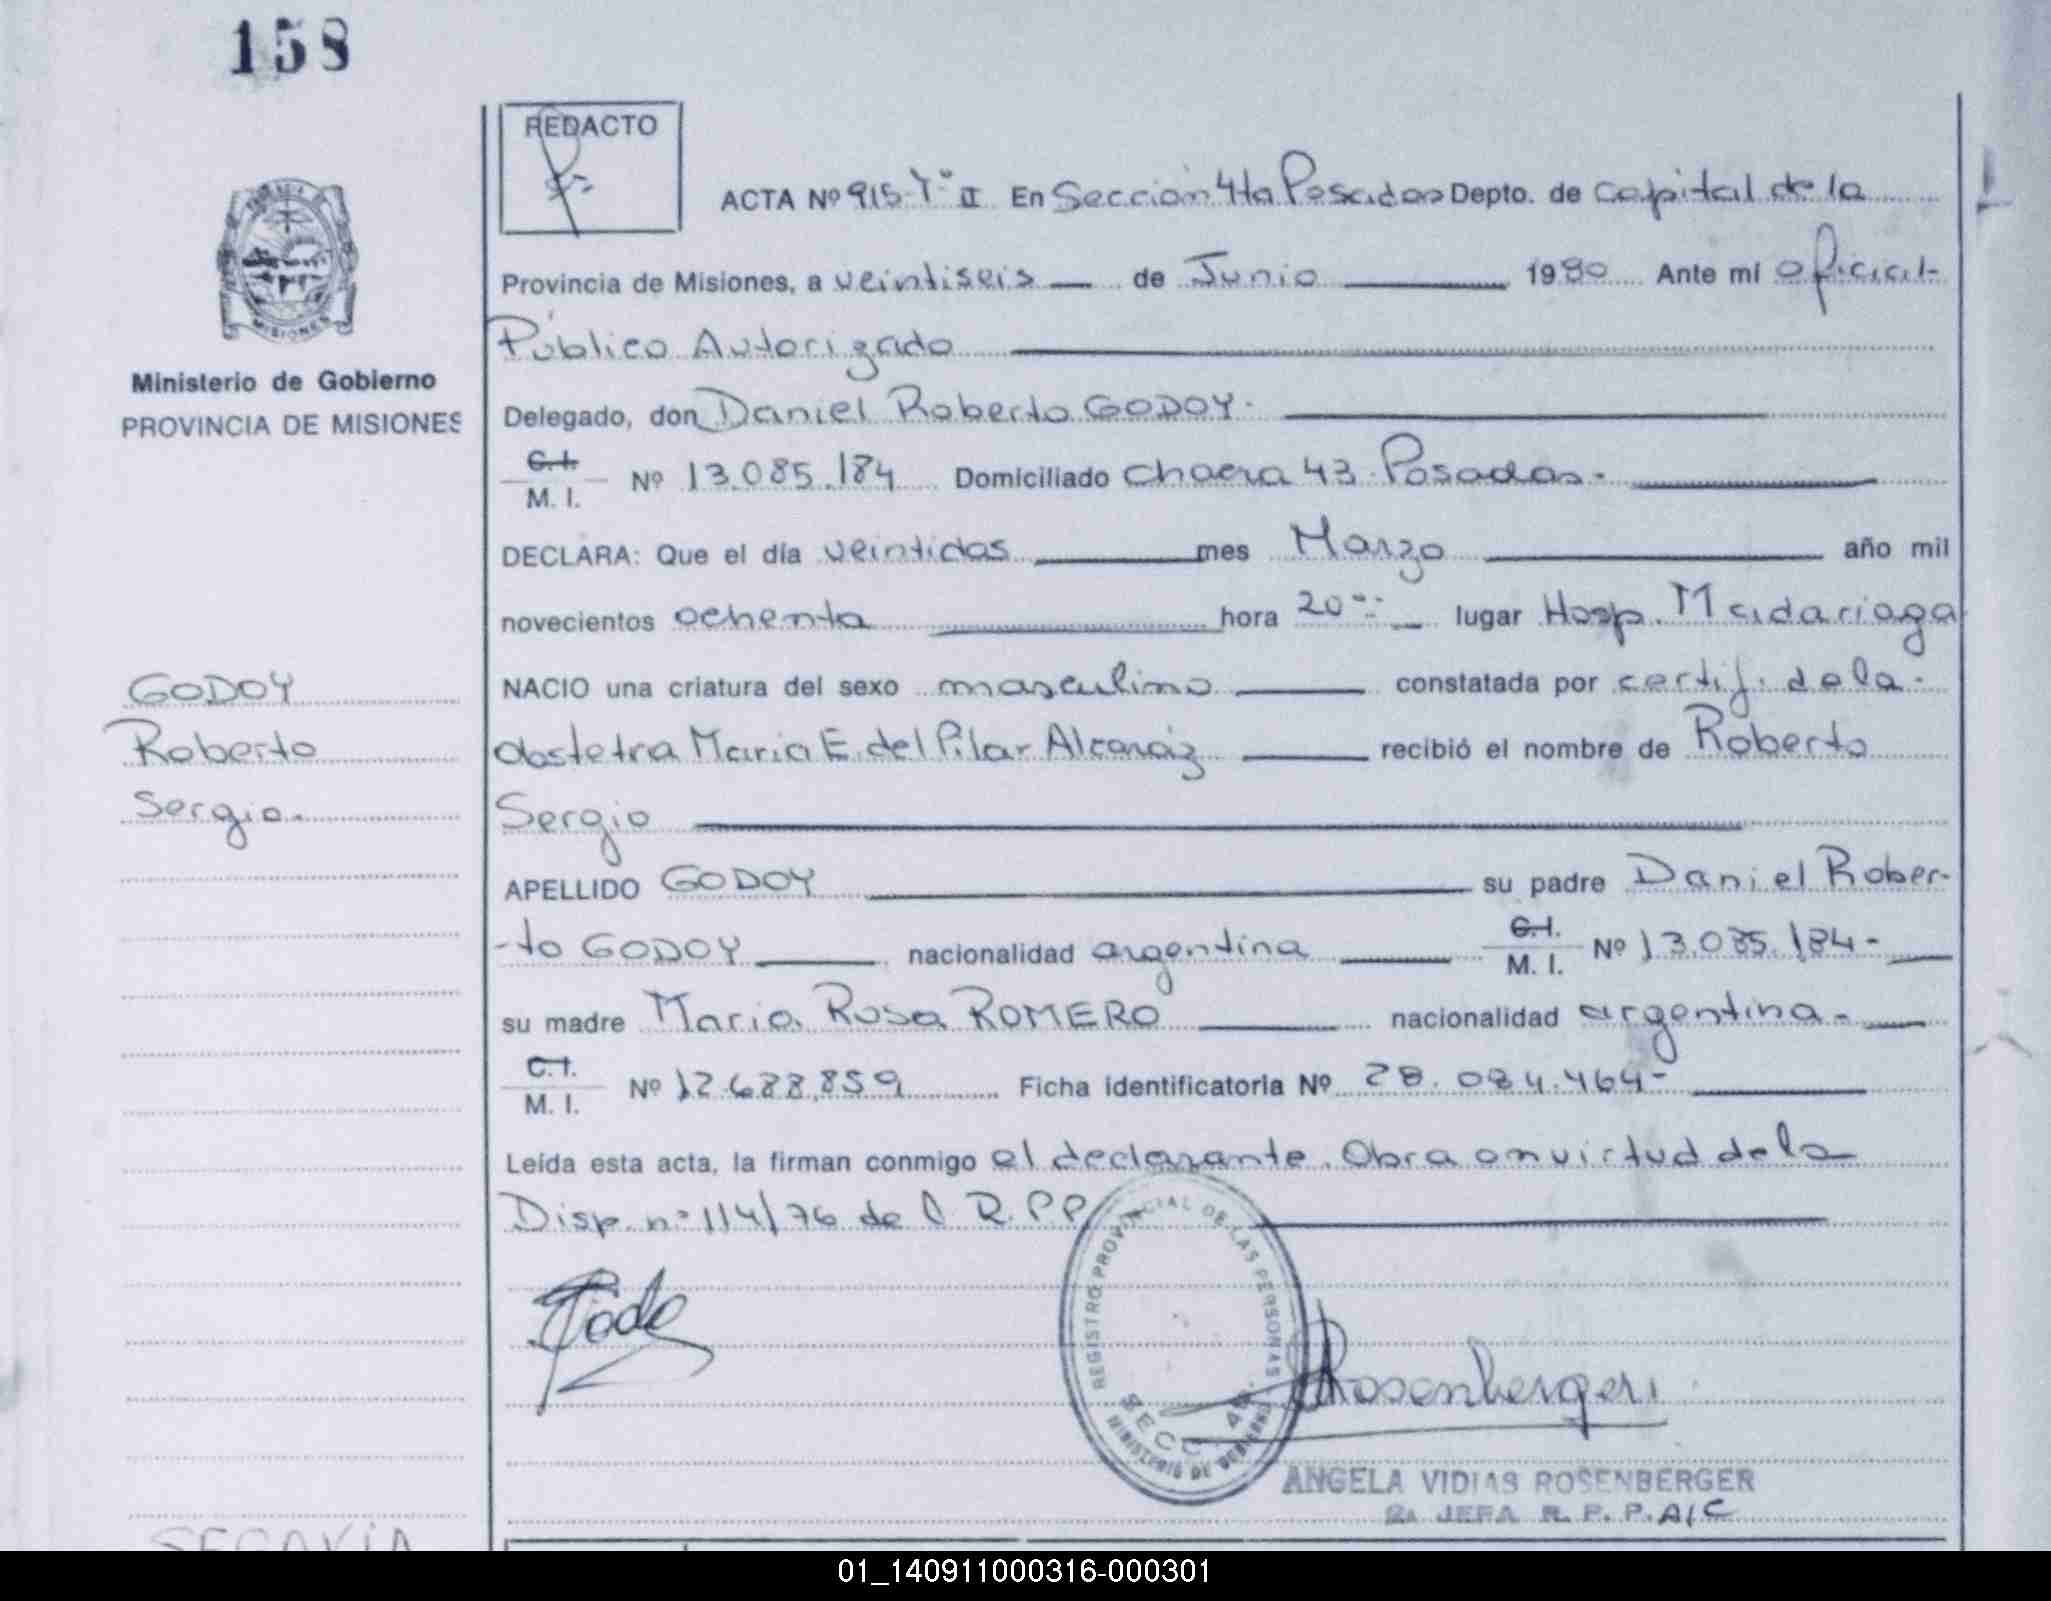 158
REDACTO
ACTA Nº 915-Tº II En Sección 4ta Posadas Depto. de Capital de la
Provincia de Misiones, a veintiseis de Junio 1980 Ante mí oficial-
Público Autorizado
Ministerio de Gobierno
PROVINCIA DE MISIONES
Delegado, don Daniel Roberto GODOY.
C.I.
M. I. Nº 13.085.184 Domiciliado Chacra 43. Posadas-
DECLARA: Que el día veintidos mes Marzo año mil
novecientos ochenta hora 20 lugar Hosp. Madariaga
GODOY
Roberto
Sergio.
NACIO una criatura del sexo masculino constatada por certif. de la.
obstetra Maria E. del Pilar Alcaráz recibió el nombre de Roberto
Sergio
APELLIDO GODOY su padre Daniel Rober-
-to GODOY nacionalidad argentina C.I.
M. I. Nº 13.085.184-
su madre Maria Rosa ROMERO nacionalidad argentina-
C.I.
M. I. Nº 12.688.859 Ficha identificatoria Nº 28.084.464-
Leída esta acta, la firman conmigo el declarante. Obra en virtud de la
Disp. nº 114/76 de R.P.P.
REGISTRO PROVINCIAL DE LAS PERSONAS
SECC. 4ª
MINISTERIO DE GOBIERNO
Rosenberger
ANGELA VIDIAS ROSENBERGER
2ª JEFA R. P. P. A/C
SEGOVIA
01_140911000316-000301